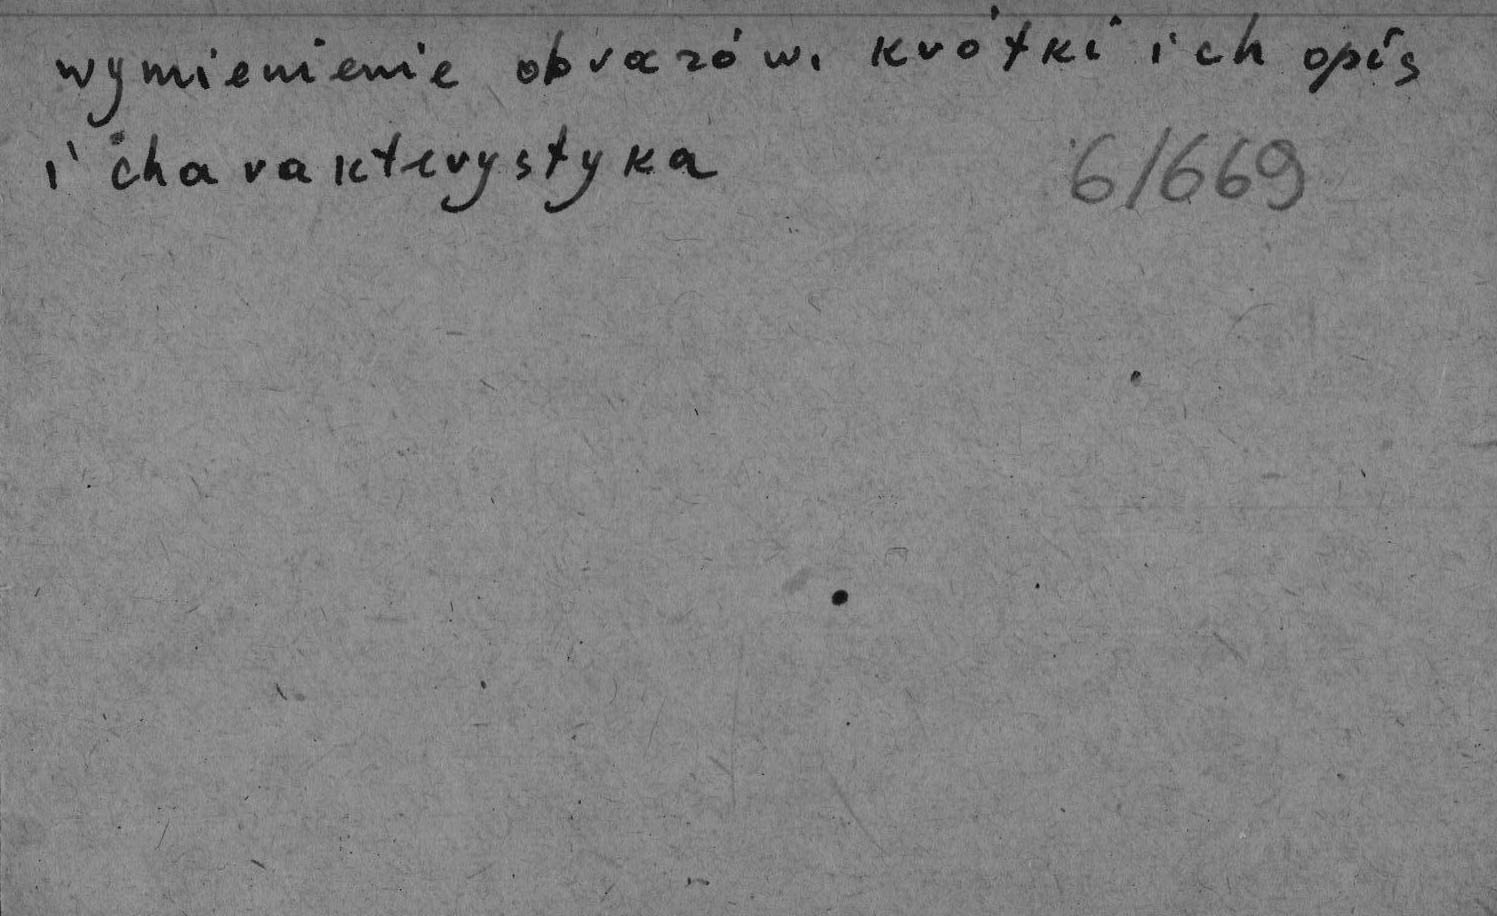 wymienienie obrazów, krótki ich opis
i charakterystyka 6/669